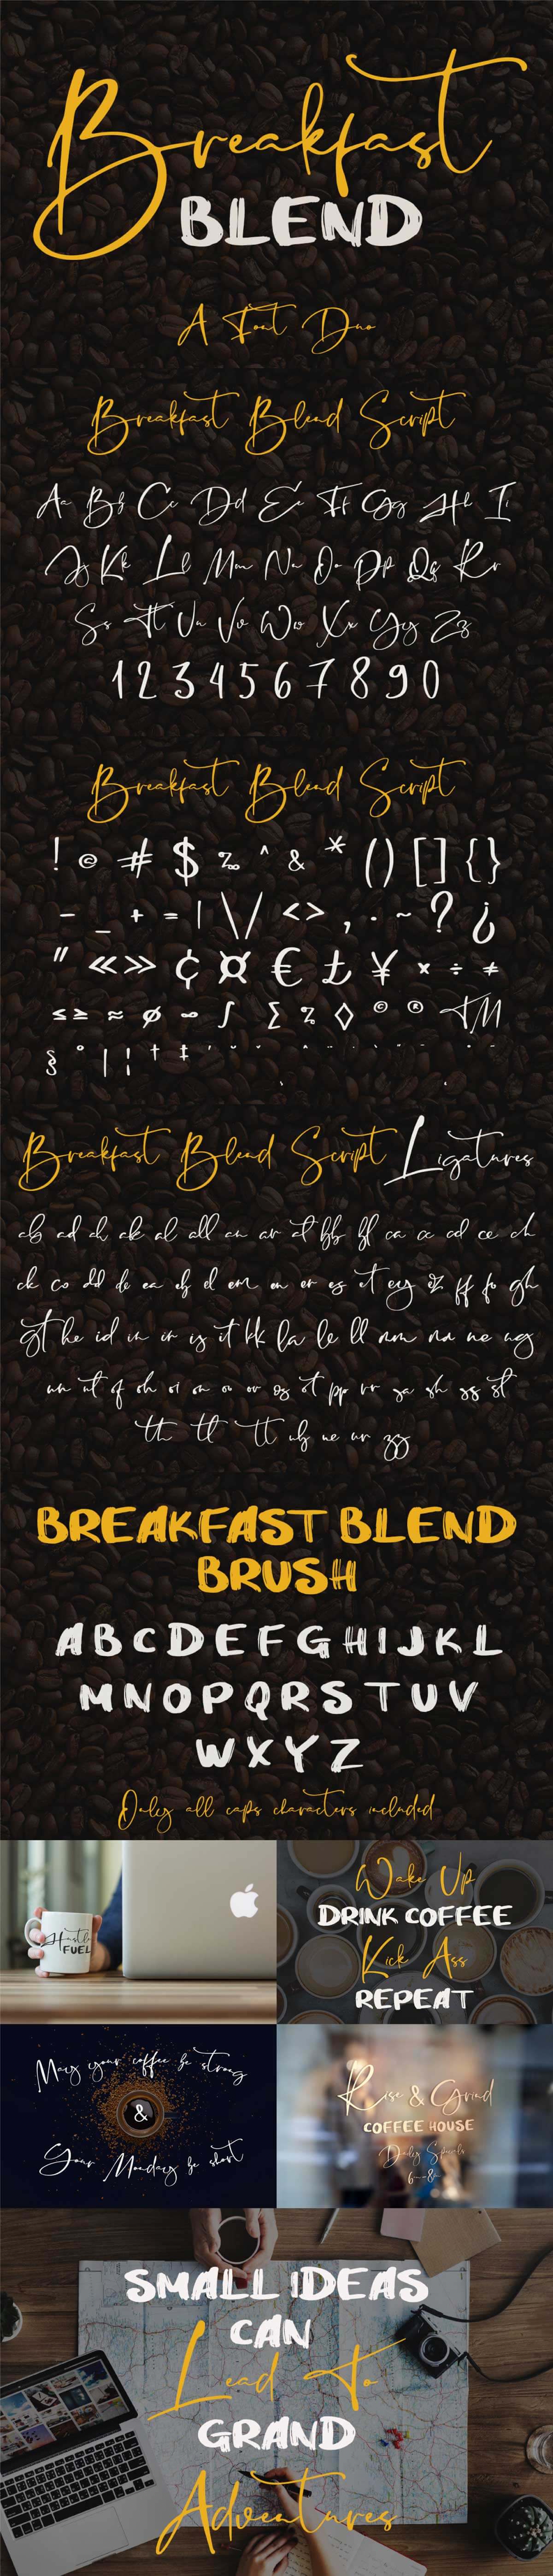 Breakfast
BLEND
A Font Duo
Breakfast Blend Script
Aa Bb Cc Dd Ee Ff Gg Hh Ii
Jj Kk Ll Mm Nn Oo Pp Qq Rr
Ss Tt Uu Vv Ww Xx Yy Zz
1 2 3 4 5 6 7 8 9 0
Breakfast Blend Script
! © # $ ‰ ^ & * () [] {}
- _ + = | \/ <> , . ~ ? ¿
" «» ¢ ¤ € £ ¥ × ÷ ≠
≤ ≥ ≈ ø ∞ ∫ ∑ % ◊ © ® TM
§ ° | ¦ † ‡
Breakfast Blend Script Ligatures
ab ad ah ak al all an ar at bb bl ca cc cd ce ch
ck co dd de ea eb el em en er es et ey ez ff fo gh
gt he id in ir is it kk la le ll mm nn ne ng
nn nt of oh oi on oo or os ot pp rr sa sh ss st
th tl tt ub ue ur zz
BREAKFAST BLEND
BRUSH
A B C D E F G H I J K L
M N O P Q R S T U V
W X Y Z
Only all caps characters included
Hustle
FUEL
Wake Up
DRINK COFFEE
Kick Ass
REPEAT
May your coffee be strong
&
Your Monday be short
Rise & Grind
COFFEE HOUSE
Daily Specials
6-8
SMALL IDEAS
CAN
Lead To
GRAND
Adventures